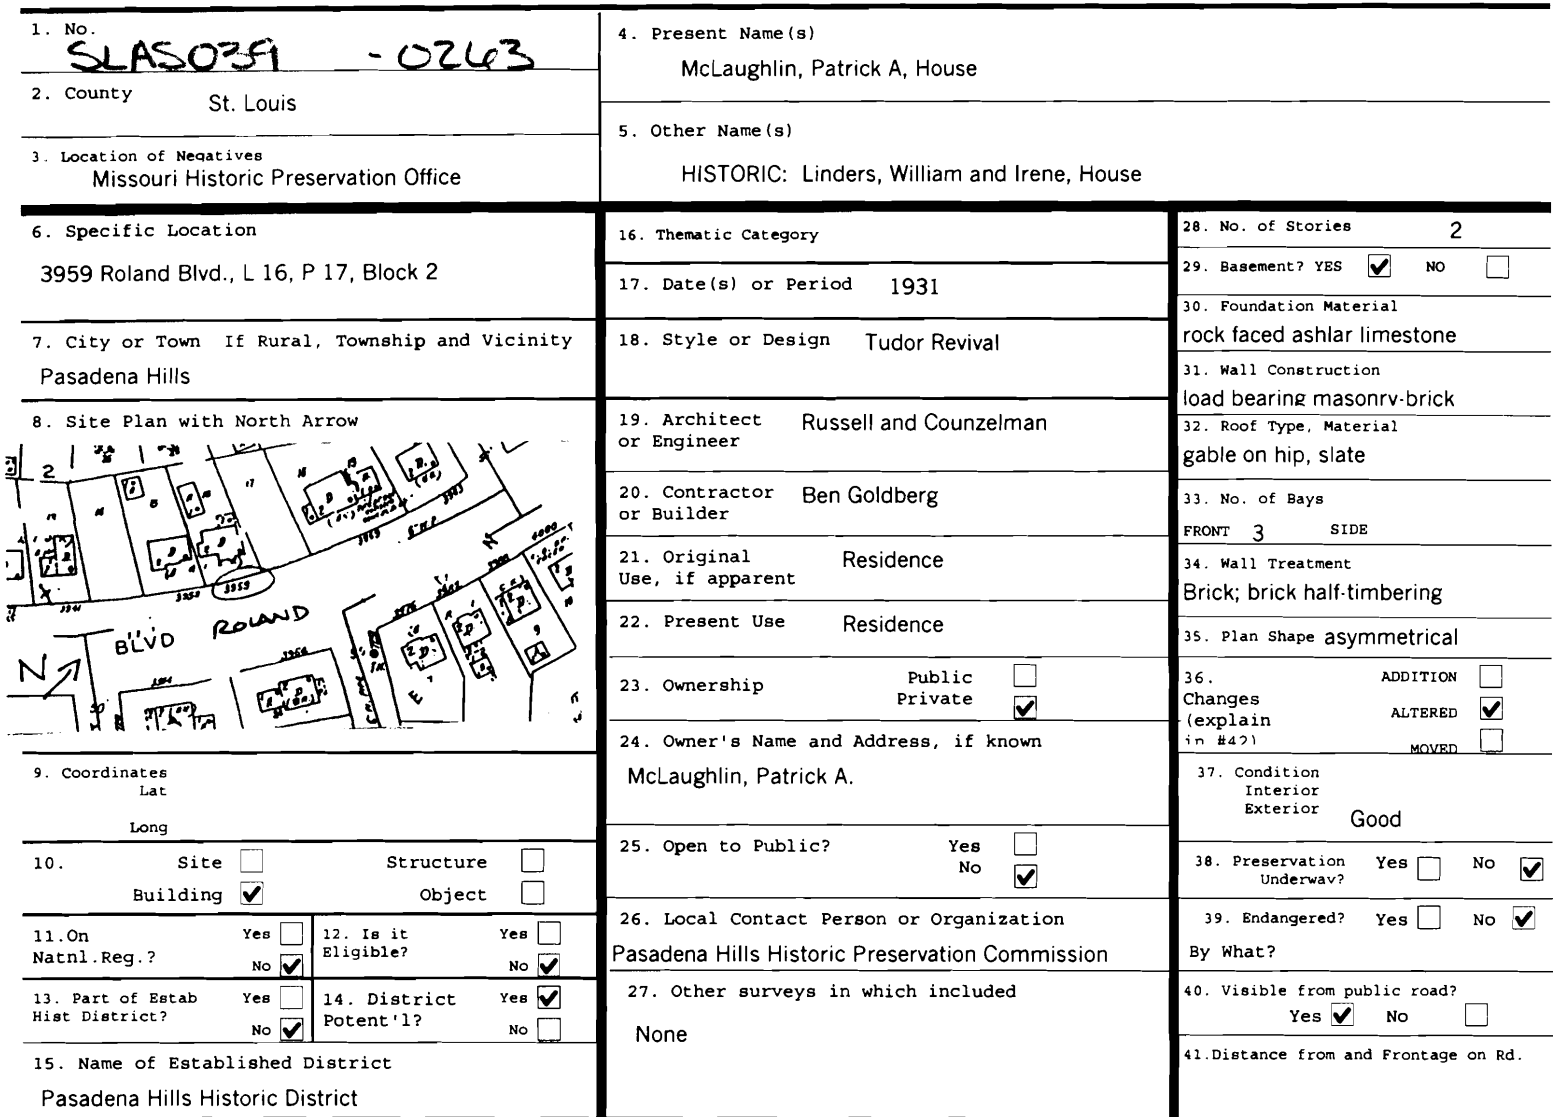 1. No.
SLAS039 - 0263
2. County St. Louis
3. Location of Negatives
Missouri Historic Preservation Office
4. Present Name(s)
McLaughlin, Patrick A, House
5. Other Name(s)
HISTORIC: Linders, William and Irene, House
6. Specific Location
3959 Roland Blvd., L 16, P 17, Block 2
7. City or Town If Rural, Township and Vicinity
Pasadena Hills
8. Site Plan with North Arrow
2
17
3963
3959
BLVD ROLAND
N
9. Coordinates
Lat
Long
10. Site Structure
Building ✔ Object
11.On Yes
Natnl.Reg.? No ✔
12. Is it Yes
Eligible? No ✔
13. Part of Estab Yes
Hist District? No ✔
14. District Yes ✔
Potent'l? No
15. Name of Established District
Pasadena Hills Historic District
16. Thematic Category
17. Date(s) or Period 1931
18. Style or Design Tudor Revival
19. Architect Russell and Counzelman
or Engineer
20. Contractor Ben Goldberg
or Builder
21. Original Residence
Use, if apparent
22. Present Use Residence
23. Ownership Public
Private ✔
24. Owner's Name and Address, if known
McLaughlin, Patrick A.
25. Open to Public? Yes
No ✔
26. Local Contact Person or Organization
Pasadena Hills Historic Preservation Commission
27. Other surveys in which included
None
28. No. of Stories 2
29. Basement? YES ✔ NO
30. Foundation Material
rock faced ashlar limestone
31. Wall Construction
load bearing masonry-brick
32. Roof Type, Material
gable on hip, slate
33. No. of Bays
FRONT 3 SIDE
34. Wall Treatment
Brick; brick half-timbering
35. Plan Shape asymmetrical
36. ADDITION
Changes
(explain ALTERED ✔
in #42) MOVED
37. Condition
Interior
Exterior Good
38. Preservation Yes No ✔
Underway?
39. Endangered? Yes No ✔
By What?
40. Visible from public road?
Yes ✔ No
41.Distance from and Frontage on Rd.